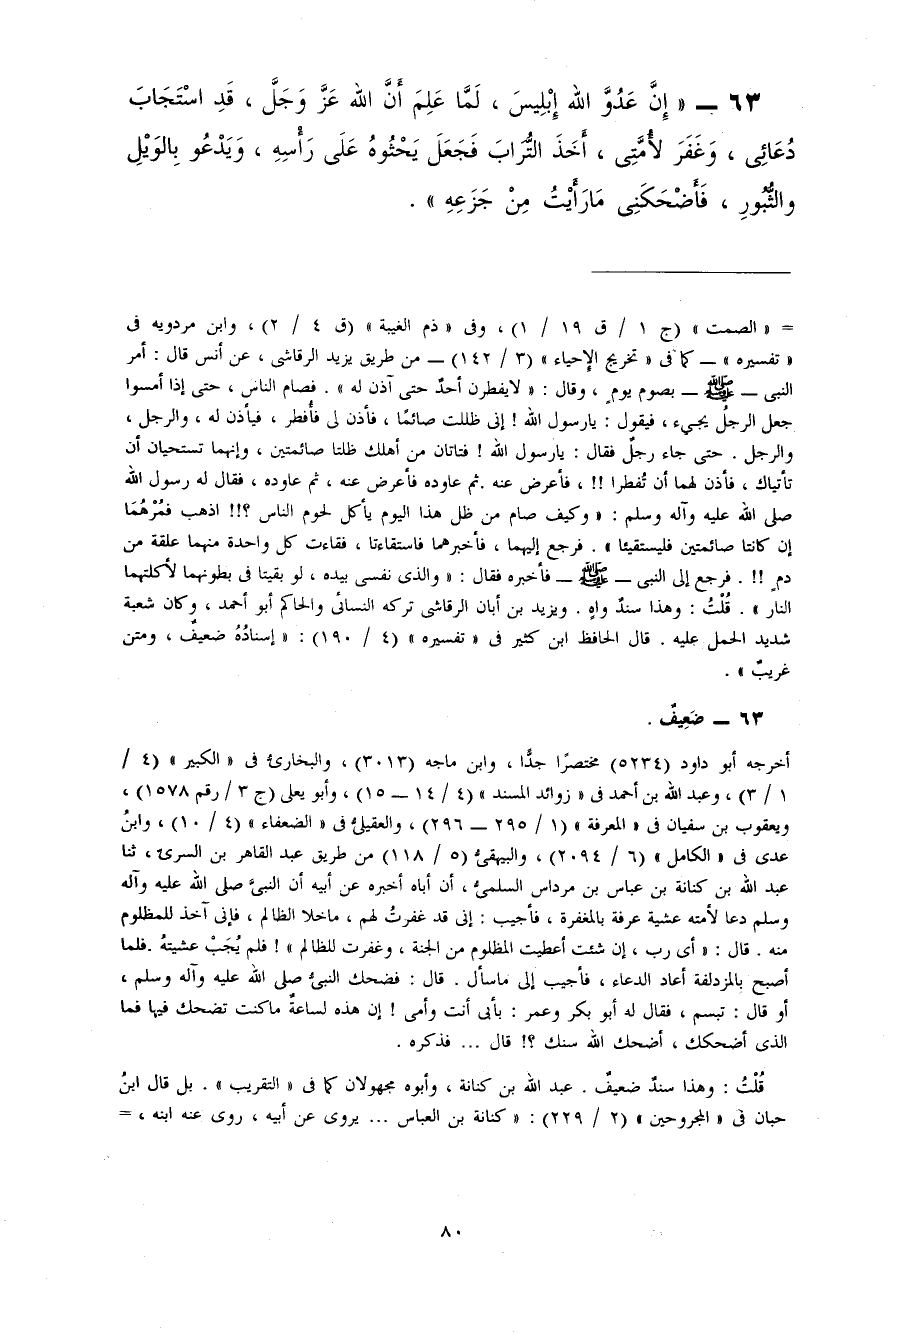 ٦٣ ــ « إِنَّ عَدُوَّ الله إِبْلِيسَ ، لَمَّا عَلِمَ أَنَّ الله عَزَّ وَجَلَّ ، قَدِ اسْتَجَابَ
دُعَائِى ، وَغَفَرَ لأُمَّتِى ، أَخَذَ التُّرَابَ فَجَعَلَ يَحْثُوهُ عَلَى رَأْسِهِ ، وَيَدْعُو بِالوَيْلِ
والثُّبُورِ ، فَأَضْحَكَنِى مَارَأَيْتُ مِنْ جَزَعِهِ » .
= « الصمت » (ج ١ / ق ١٩ / ١) ، وفى « ذم الغيبة » (ق ٤ / ٢) ، وابن مردويه فى
« تفسيره » ــ كما فى « تخريج الإحياء » (٣ / ١٤٢) ــ من طريق يزيد الرقاشى ، عن أنس قال : أمر
النبى ــ ﷺ ــ بصوم يومٍ ، وقال : « لايفطرن أحدٌ حتى آذن له » . فصام الناس ، حتى إذا أمسوا
جعل الرجلُ يجىء ، فيقول : يارسول الله ! إنى ظللت صائمًا ، فأذن لى فأُفطر ، فيأذن له ، والرجل ،
والرجل . حتى جاء رجلٌ فقال : يارسول الله ! فتاتان من أهلك ظلتا صائمتين ، وإنهما تستحيان أن
تأتياك ، فأذن لهما أن تُفطرا !! ، فأعرض عنه .ثم عاوده فأعرض عنه ، ثم عاوده ، فقال له رسول الله
صلى الله عليه وآله وسلم : « وكيف صام من ظل هذا اليوم يأكل لحوم الناس ؟!! اذهب فمُرْهُمَا
إن كانتا صائمتين فليستقيئا » . فرجع إليهما ، فأخبرهما فاستقاءتا ، فقاءت كل واحدة منهما علقة من
دمٍ !! . فرجع إلى النبى ــ ﷺ ــ فأخبره فقال : « والذى نفسى بيده ، لو بقيتا فى بطونهما لأكلتهما
النار » . قُلْتُ : وهذا سندٌ واهٍ . ويزيد بن أبان الرقاشى تركه النسائى والحاكم أبو أحمد ، وكان شعبة
شديد الحمل عليه . قال الحافظ ابن كثير فى « تفسيره » (٤ / ١٩٠) : « إسنادُهُ ضعيفٌ ، ومتن
غريبٌ » .
٦٣ ــ ضَعِيفٌ .
أخرجه أبو داود (٥٢٣٤) مختصرًا جدًّا ، وابن ماجه (٣٠١٣) ، والبخارىُ فى « الكبير » (٤ /
١ / ٣) ، وعبد الله بن أحمد فى « زوائد المسند » (٤ / ١٤ ــ ١٥) ، وأبو يعلى (ج ٣ / رقم ١٥٧٨) ،
ويعقوب بن سفيان فى « المعرفة » (١ / ٢٩٥ ــ ٢٩٦) ، والعقيلىُ فى « الضعفاء » (٤ / ١٠) ، وابنُ
عدى فى « الكامل » (٦ / ٢٠٩٤) ، والبيهقىُ (٥ / ١١٨) من طريق عبد القاهر بن السرى ، ثنا
عبد الله بن كنانة بن عباس بن مرداس السلمىُ ، أن أباه أخبره عن أبيه أن النبىَّ صلى الله عليه وآله
وسلم دعا لأمته عشية عرفة بالمغفرة ، فأجيب : إنى قد غفرتُ لهم ، ماخلا الظالم ، فإنى آخذ للمظلوم
منه . قال : « أى رب ، إن شئت أعطيت المظلوم من الجنة ، وغفرت للظالم » ! فلم يُجَبْ عشيتهُ .فلما
أصبح بالمزدلفة أعاد الدعاء ، فأجيب إلى ماسأل . قال : فضحك النبىُ صلى الله عليه وآله وسلم ،
أو قال : تبسم ، فقال له أبو بكر وعمر : بأبى أنت وأمى ! إن هذه لساعةٌ ماكنت تضحك فيها فما
الذى أضحكك ، أضحك الله سنك ؟! قال ... فذكره .
قُلْتُ : وهذا سندٌ ضعيفٌ . عبد الله بن كنانة ، وأبوه مجهولان كما فى « التقريب » . بل قال ابنُ
حبان فى « المجروحين » (٢ / ٢٢٩) : « كنانة بن العباس ... يروى عن أبيه ، روى عنه ابنه ، =
٨٠